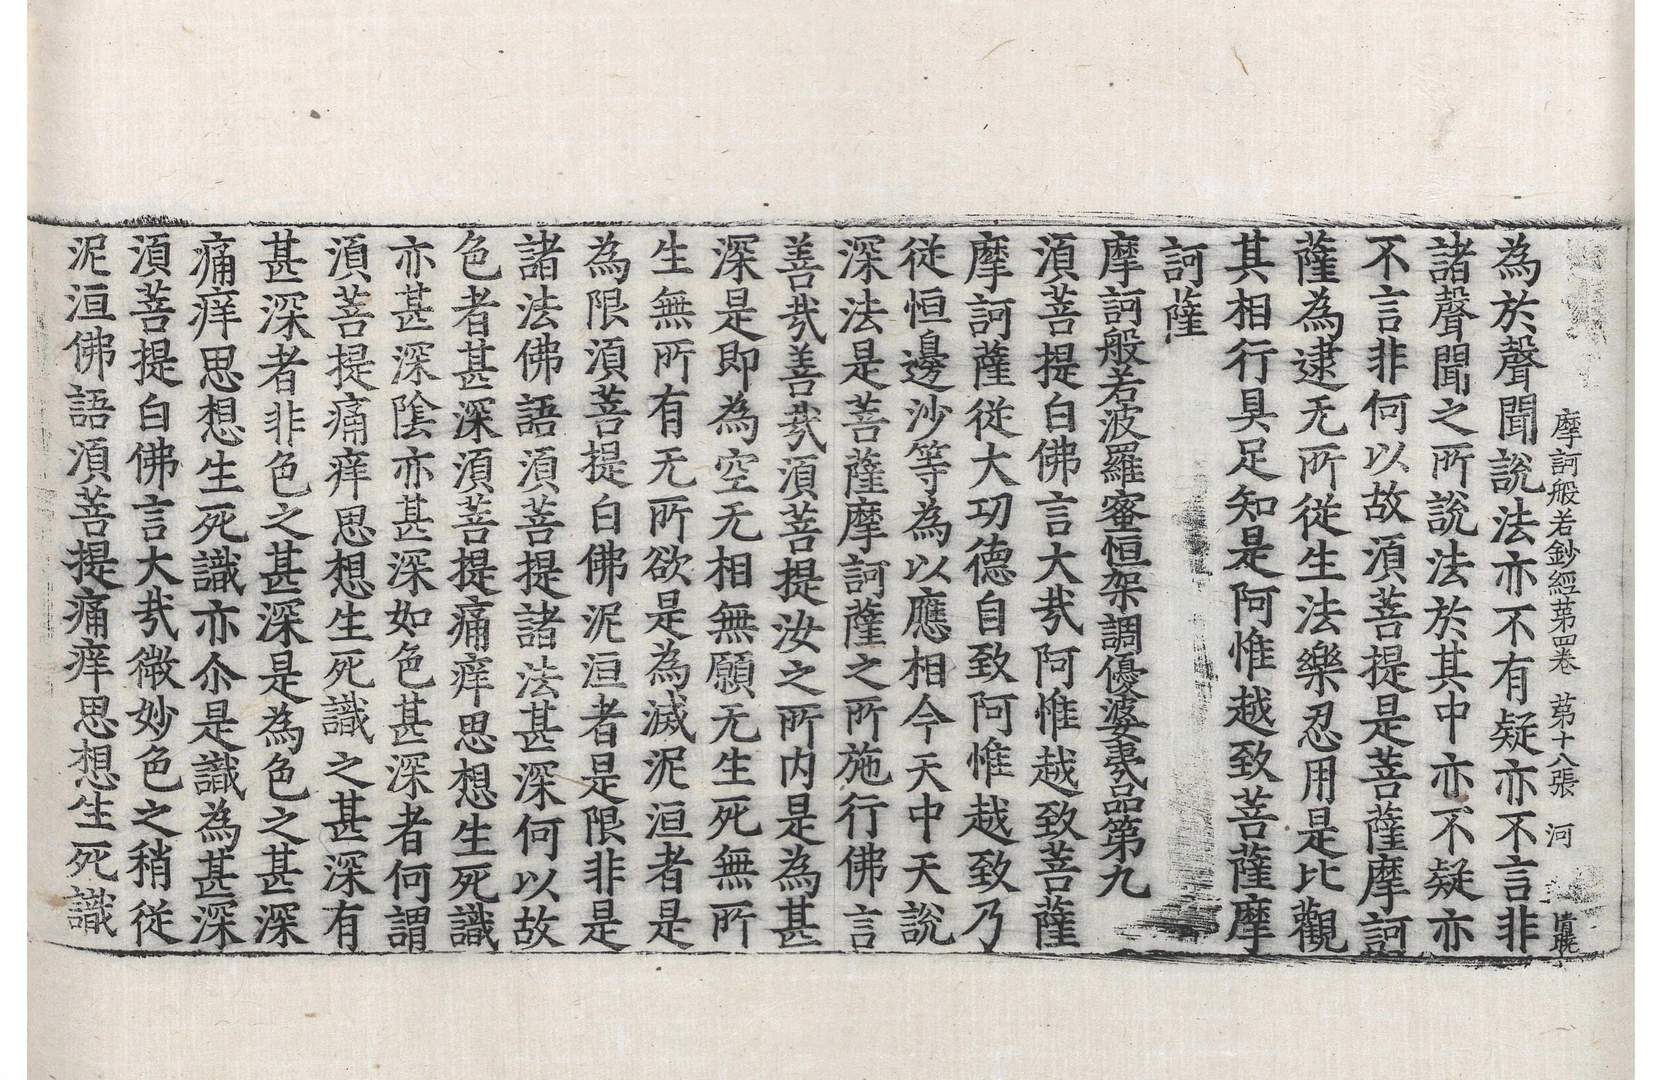 摩訶般若鈔經第四卷 第十八張 河
為於聲聞說法亦不有疑亦不言非
諸聲聞之所說法於其中亦不疑亦
不言非何以故湏菩提是菩薩摩訶
薩為逮无所從生法樂忍用是比觀
其相行具足知是阿惟越致菩薩摩
訶薩
摩訶般若波羅蜜恒架調優婆夷品第九
湏菩提白佛言大㢤阿惟越致菩薩
摩訶薩從大功德自致阿惟越致乃
從恒邊沙等為以應相今天中天說
深法是菩薩摩訶薩之所施行佛言
善㢤善㢤湏菩提汝之所内是為甚
深是即為空无相無願无生死無所
生無所有无所欲是為滅泥洹者是
為限湏菩提白佛泥洹者是限非是
諸法佛語湏菩提諸法甚深何以故
色者甚深湏菩提痛痒思想生死識
亦甚深陰亦甚深如色甚深者何謂
湏菩提痛痒思想生死識之甚深有
甚深者非色之甚深是為色之甚深
痛痒思想生死識亦尒是識為甚深
湏菩提白佛言大㢤微妙色之稍從
泥洹佛語湏菩提痛痒思想生死識